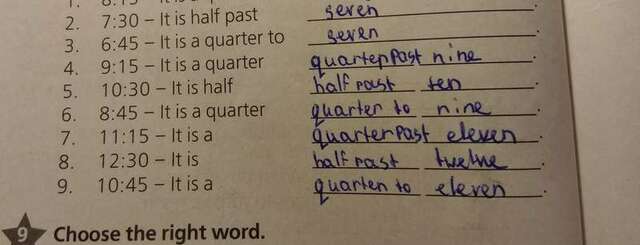 2. 7:30 – It is half past seven.
3. 6:45 – It is a quarter to seven.
4. 9:15 – It is a quarter quarter past nine.
5. 10:30 – It is half half past ten.
6. 8:45 – It is a quarter quarter to nine.
7. 11:15 – It is a quarter past eleven.
8. 12:30 – It is half past twelve.
9. 10:45 – It is a quarter to eleven.
9 Choose the right word.